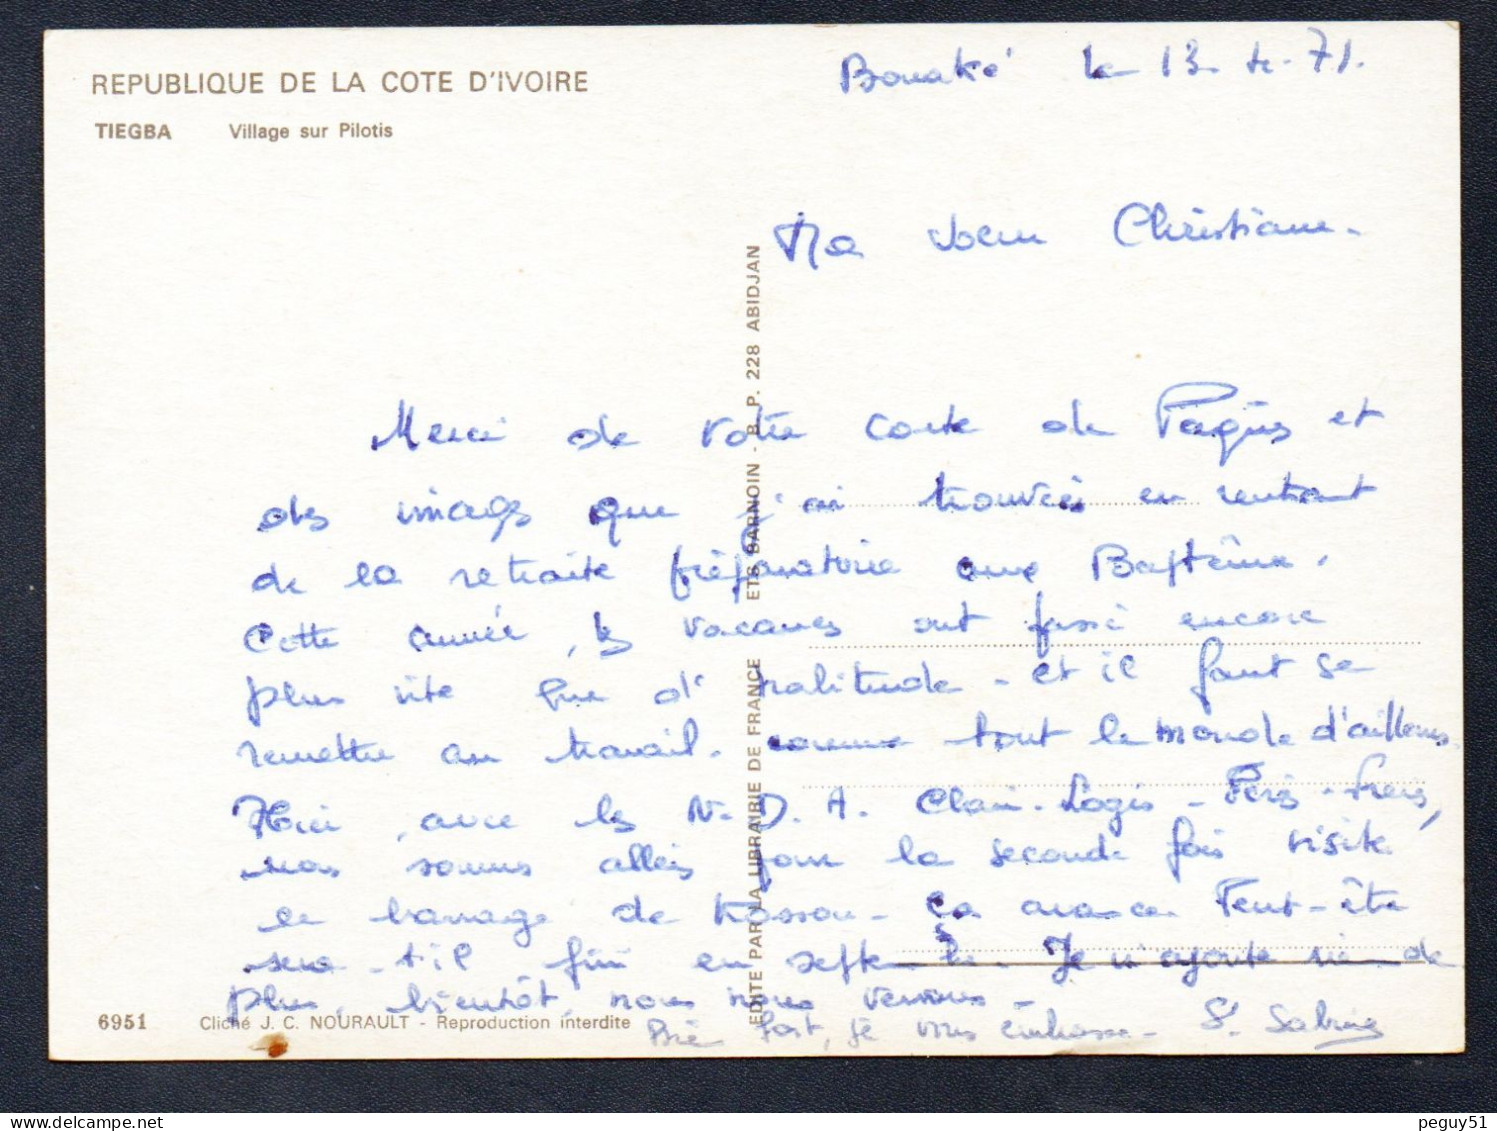 REPUBLIQUE DE LA COTE D'IVOIRE
TIEGBA Village sur Pilotis
Bouaké le 13.4.71.
Ma Soeur Christiane.
Merci de votre carte de Pâques et
des images que j'ai trouvées en rentrant
de la retraite préparatoire aux Baptêmes.
Cette année, les vacances ont passé encore
plus vite que d'habitude - et il faut se
remettre au travail. comme tout le monde d'ailleurs.
Hier, avec les N.D.A. Clair-Logis - Pères - Frères,
nous sommes allées pour la seconde fois visite
le barrage de Kossou - ça avance. Peut-être
sera-t-il fini en septembre. Je n'ajoute rien de
plus, bientôt, nous nous verrons -
fort, je vous embrasse - Sr. Sabine
EDITE PAR LA LIBRAIRIE DE FRANCE ETS BARNOIN - B. P. 228 ABIDJAN
6951 Cliché J. C. NOURAULT - Reproduction interdite
peguy51